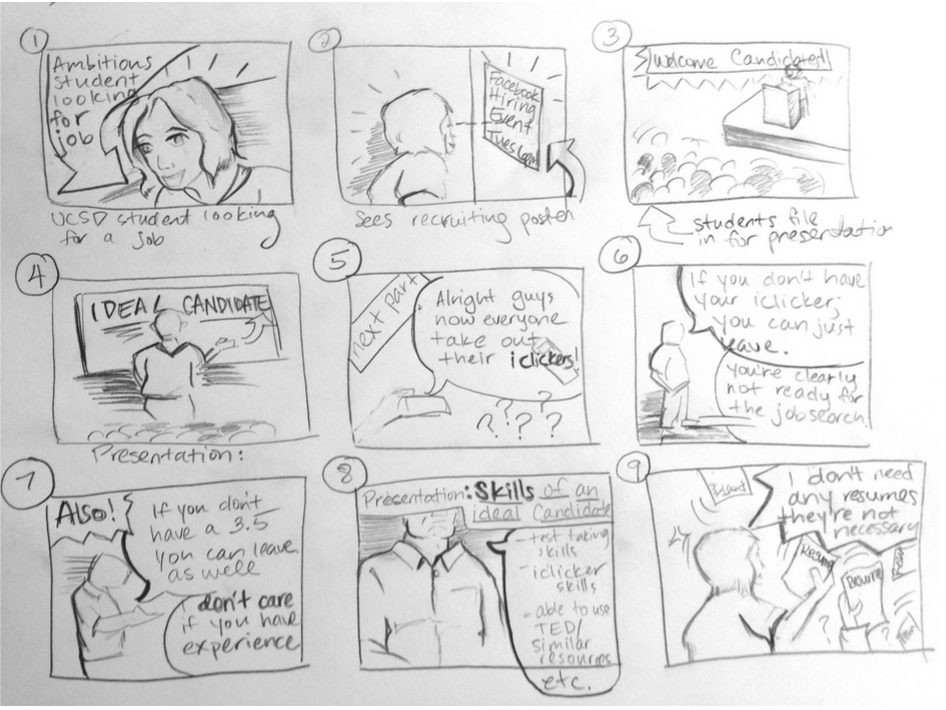 1
Ambitious
student
looking
for
job
UCSD student looking
for a job
2
Facebook
Hiring
Event
Tues
Sees recruiting poster
3
Welcome Candidates!
students file
in for presentation
4
IDEAL CANDIDATE
Presentation:
5
next part
Alright guys
now everyone
take out
their iclickers!
? ? ? ? ?
6
If you don't have
your iclicker,
you can just
leave.
you're clearly
not ready for
the job search.
7
Also!
If you don't
have a 3.5
you can leave
as well
I don't care
if you have
experience
8
Presentation: Skills of an
ideal Candidate
- test taking
skills
- iclicker
skills
- able to use
TED/
similar
resources
etc.
9
I don't need
any resumes
they're not
necessary
Resume
Resume
? ?